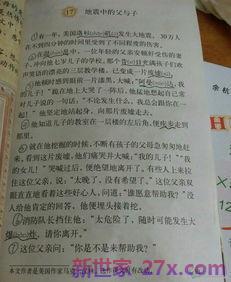 17 地震中的父与子
有一年,美国洛杉矶发生大地震,30万人
在不到四分钟的时间里受到了不同程度的伤害。
在混乱中,一位年轻的父亲安顿好受伤的妻
子,冲向他七岁儿子的学校。那个昔日充满孩子们欢
声笑语的漂亮的三层教学楼,已变成一片废墟。
他顿时感到眼前一片漆黑,大喊:“阿曼达,
我的儿子!”跪在地上大哭了一阵后,他猛地想起自己常
对儿子说的一句话:“不论发生什么,我总会跟你在一
起!”他坚定地站起身,向那片废墟走去。
他知道儿子的教室在一层楼的左后角,便疾步走到
那里。
就在他挖掘的时候,不断有孩子的父母急匆匆地赶
来,看到这片废墟,他们痛哭并大喊:“我的儿子!”“我
的女儿!”哭喊过后,便绝望地离开了。有些人上来拉
住这位父亲,说:“太晚了,没有希望了。”这位父亲双
眼直直地看着这些好心人,问道:“谁愿意帮助我?”没
人给他肯定的回答,他便埋头接着挖。
消防队长挡住他:“太危险了,随时可能发生大
爆炸,请你离开。”
这位父亲问:“你是不是来帮助我?”
本文作者是美国作家马克
新世家.27x.com